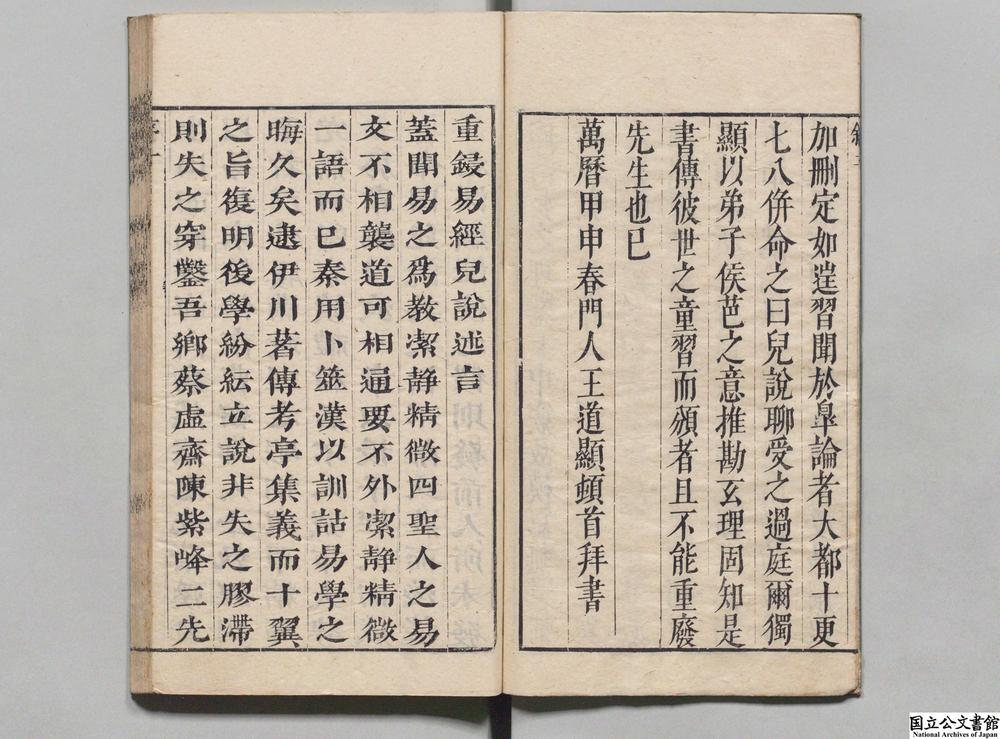 加刪定如逹習聞於皐論者大都十更
七八併命之曰兒說聊受之過庭爾獨
顯以弟子侯芭之意推勘玄理固知是
書傳彼世之童習而頒者且不能重廢
先生也已
萬曆甲申春門人王道顯頓首拜書
重鋟易經兒說述言
蓋聞易之爲教潔靜精微四聖人之易
文不相襲道可相通要不外潔靜精微
一語而已秦用卜筮漢以訓詁易學之
晦久矣逮伊川著傳考亭集義而十翼
之旨復明後學紛紜立說非失之膠滯
則失之穿鑿吾鄉蔡虛齋陳紫峰二先
国立公文書館
National Archives of Japan